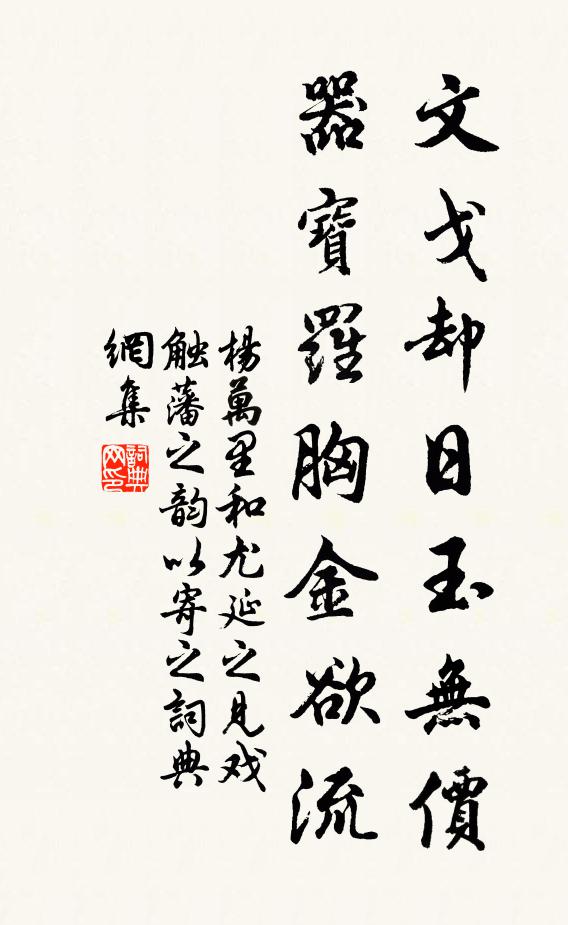 文戈却日玉無價
器寶羅胸金欲流
楊萬里和尤延之見戏
触藩之韵以寄之詞典
網集
詞典
网印